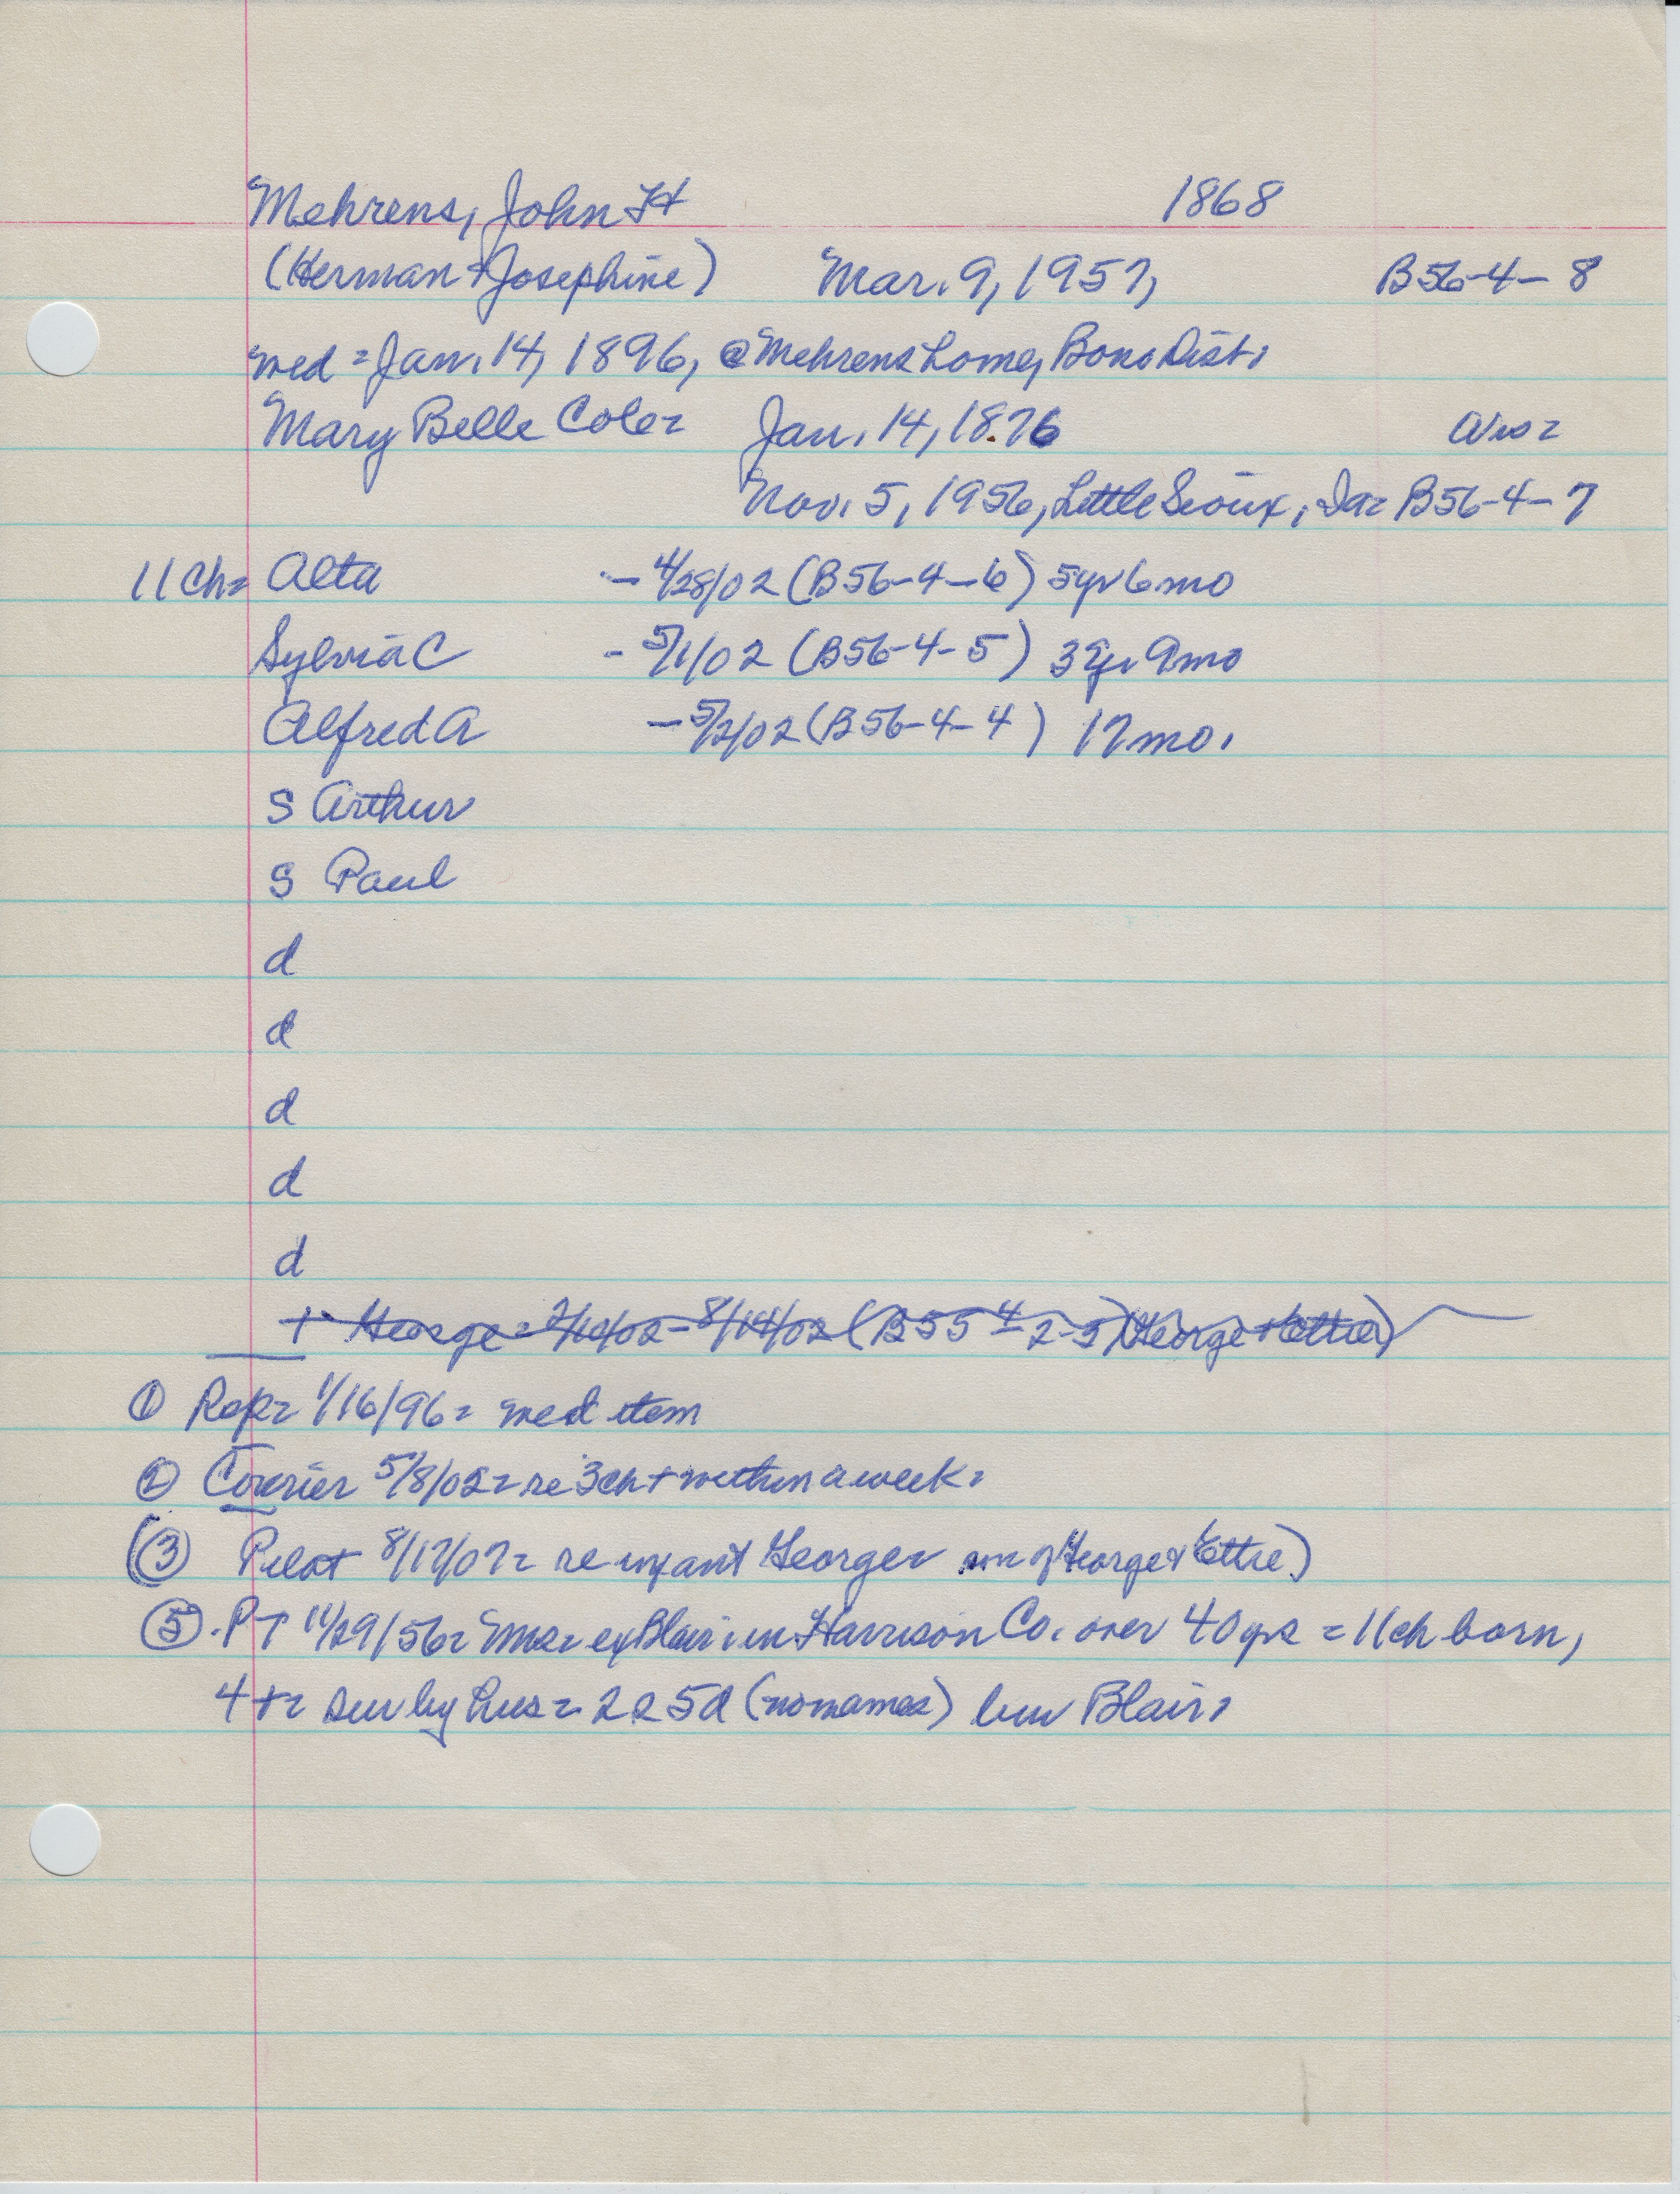 Mehrens, John H 1868
(Herman + Josephine) Mar. 9, 1957, B56-4-8
wed = Jan. 14, 1896, @ Mehrens home, Bono Dist.
Mary Belle Cole = Jan. 14, 1876
Nov. 5, 1956, Little Sioux, Ia = B56-4-7
11 ch = Alta - 4/28/02 (B56-4-6) 5yr 6mo
Sylvia C - 5/1/02 (B56-4-5) 3yr 9mo
Alfred A - 5/2/02 (B56-4-4) 17mo.
s Arthur
s Paul
d
d
d
d
d
+ George = /02 - 8/14/02 (B55-4-2-5) (George + Ettie)
① Rep = 1/16/96 = wed item
② Courier 5/8/02 = re 3ch + within a week =
(③ Pilot 8/17/07 = re infant George = son of George & Ettie)
⑤. PT 11/29/56 = Mrs = ex Blair: in Harrison Co. over 40 yrs = 11 ch born,
4 + = sur by hus = 2s 5d (no names) bur Blair.